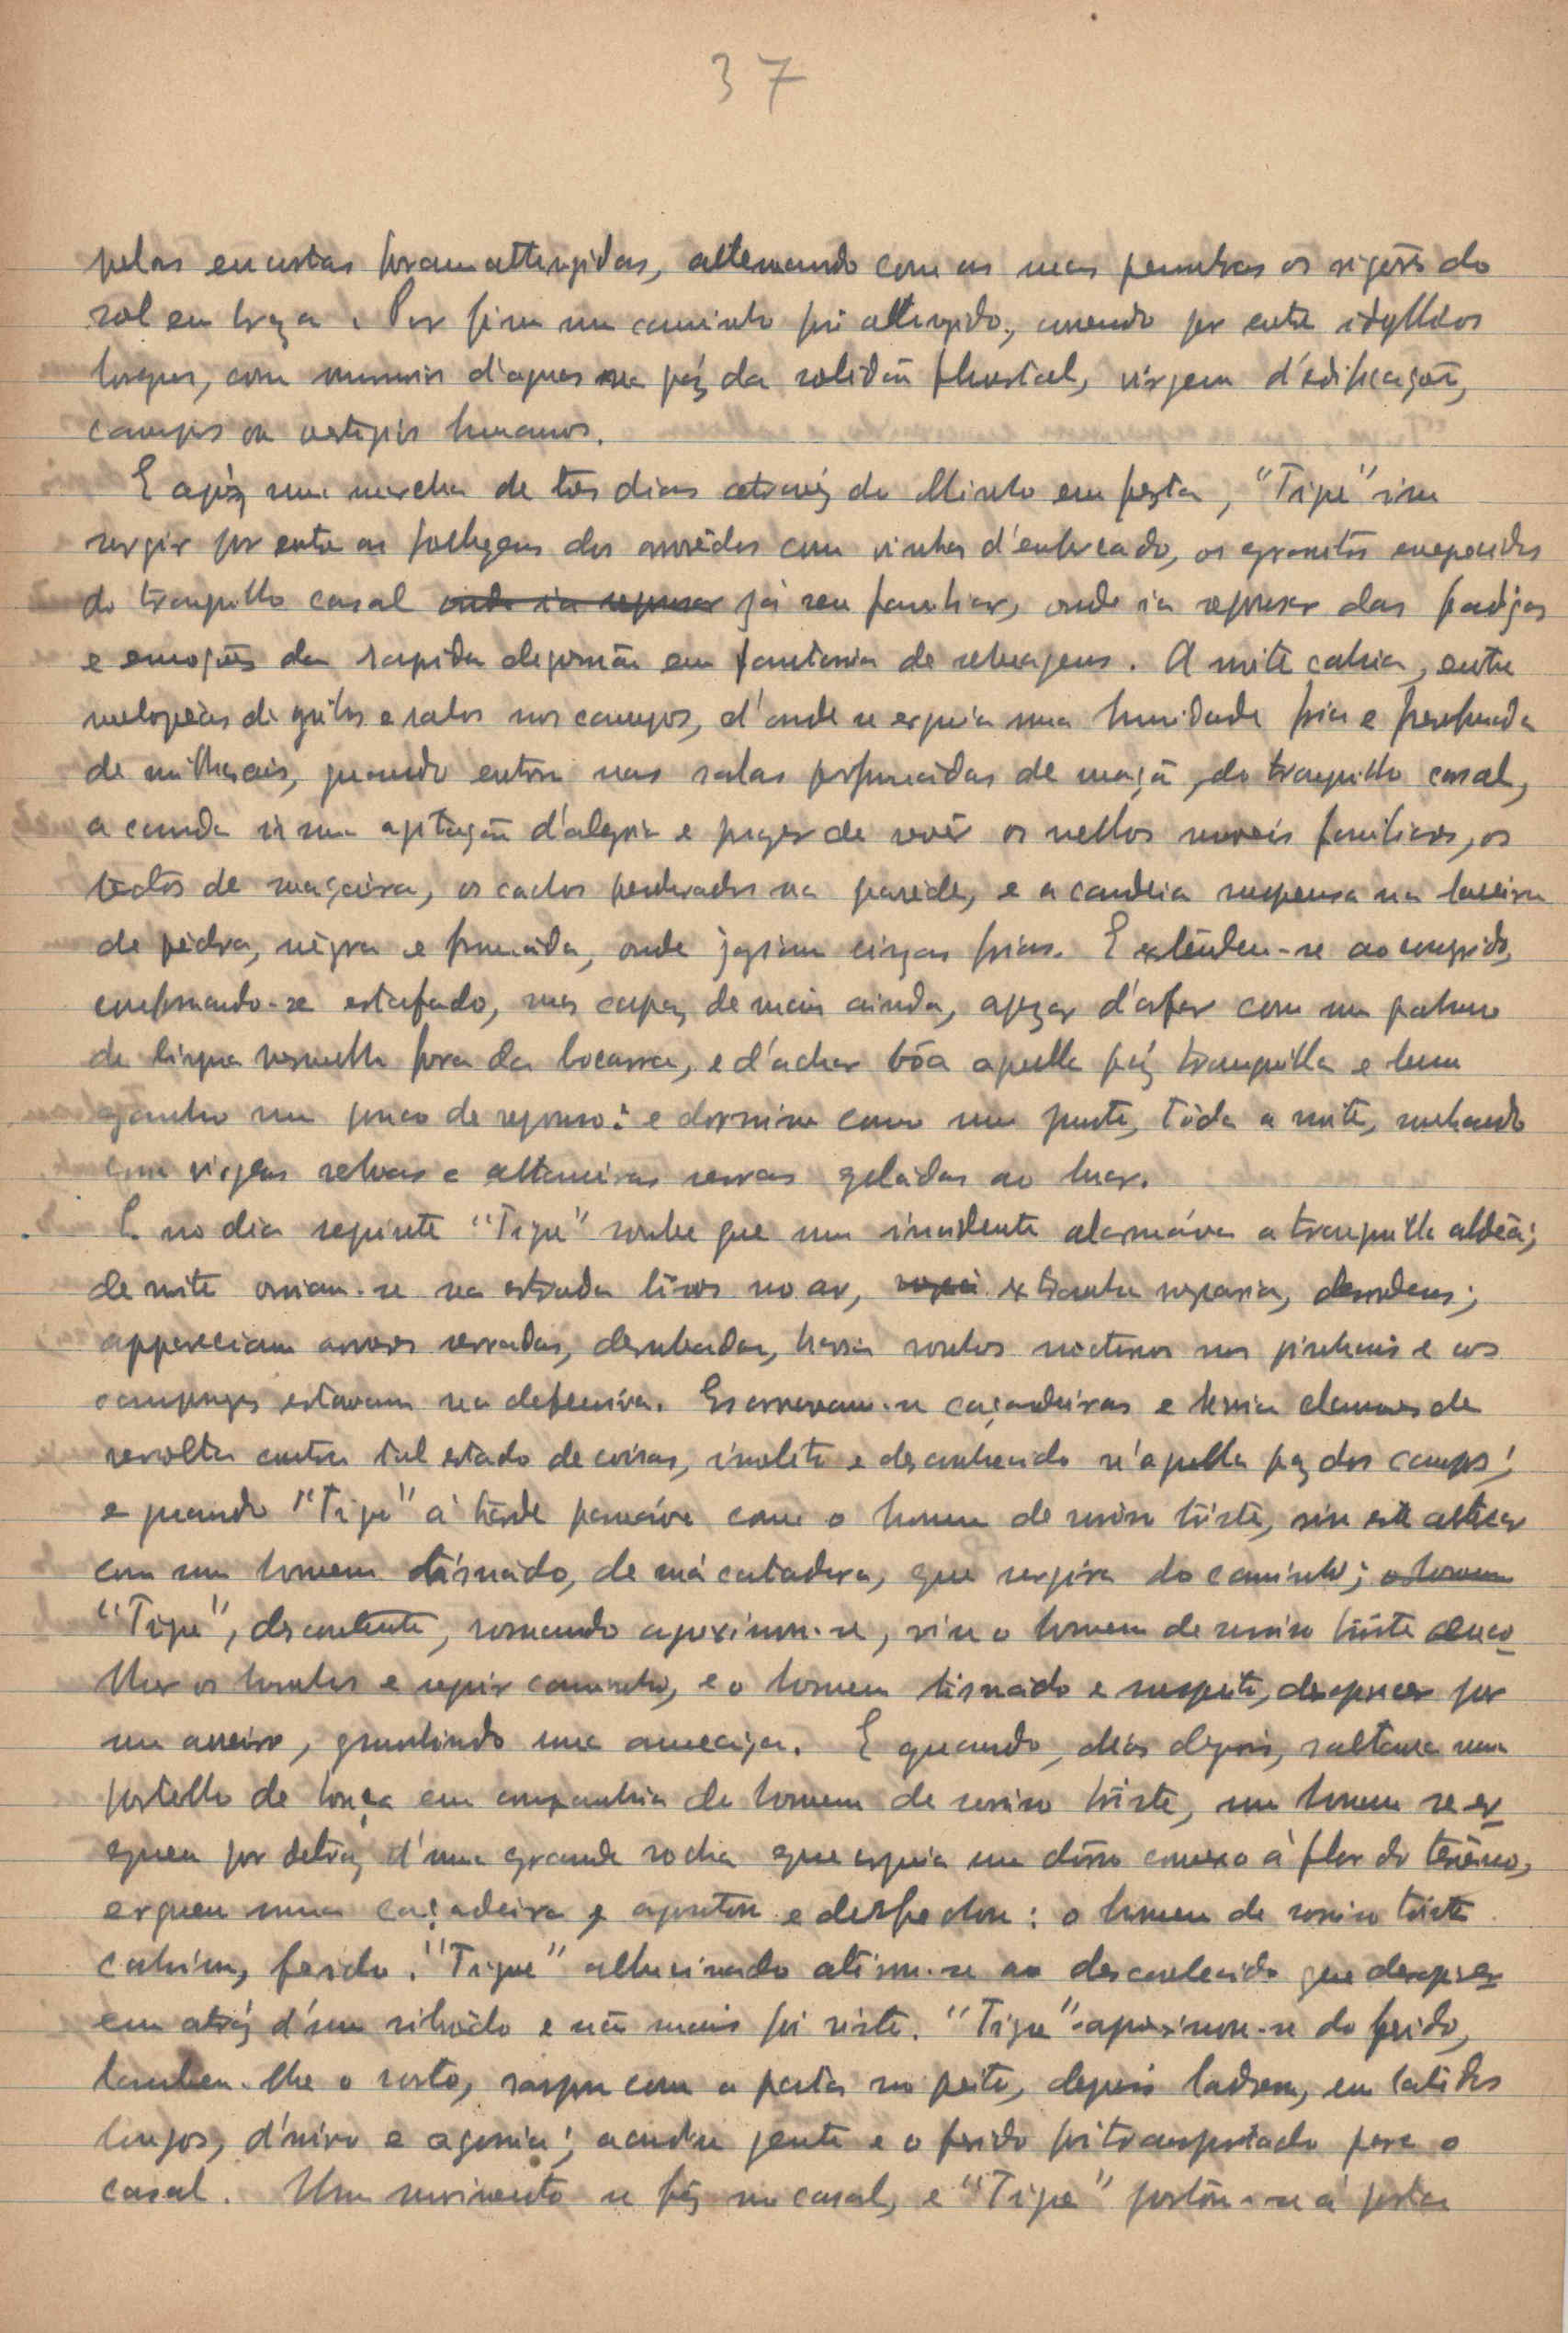 37
pelas encostas foram attingidas, alternando com as suas penumbras os rigores do
sol em braza. Por fim um caminho foi attingido, correndo por entre idyllicos
bosques, com murmurios d'aguas na paz da solidão florestal, virgem d'edificação,
campos ou vestigios humanos.
E após uma marcha de tres dias atravéz do Minho em festa, "Tigre" viu
surgir por entre as folhagens dos arvorêdos com vinhas d'enforcado, os granitos ennegrecidos
do tranquillo casal onde ia repousar já seu familiar, onde ia repousar das fadigas
e emoções da rapida digressão em fantasia de selvagens. A noite cahia, entre
melopeias de grilos e ralos nos campos, d'onde se erguia uma humidade fria e perfumada
de milharais, quando entrou nas salas perfumadas de maçã, do tranquillo casal,
a cauda n'uma agitação d'alegria e prazer de revêr os velhos moveis familiares, os
tectos de maçeira, os cachos pendurados na parede, e a candeia suspensa na lareira
de pedra, negra e fumada, onde jaziam cinzas frias. E extendeu-se ao comprido,
confessando-se estafado, mas capaz de mais ainda, apezar d'arfar com um palmo
de lingua vermelha fora da bocarra, e d'achar bôa aquella paz tranquilla e bem
ganho um pouco de repouso: e dormiu como um justo, tôda a noite, sonhando
com virgens selvas e altaneiras serras geladas ao luar.
E no dia seguinte "Tigre" soube que um incidente alarmáva a tranquilla aldeia;
de noite ouviam-se na estrada tiros no ar, extranha vozearia, desordens;
appareciam arvores serradas, derrubadas, havia roubos nocturnos nos pinhais e os
camponezes estavam na defensiva. Escorvavam-se caçadeiras e havia clamores de
revolta contra tal estado de coisas, insolito e desconhecido n'aquella paz dos campos;
e quando "Tigre" á tarde passeáva com o homem de sorriso triste, viu este altercar
com um homem tisnado, de má catadura, que surgira do caminho; o homem
"Tigre", descontente, rosnando aproximou-se, viu o homem de sorriso triste enco-
lher os hombros e seguir caminho, e o homem tisnado e suspeito, desaparecer por
um atalho, grunhindo uma ameaça. E quando, dias depois, saltava um
portello de bouça em companhia do homem de sorriso triste, um homem se er-
gueu por detraz d'uma grande rocha que erguia um dôrso convexo á flor do terreno,
ergueu uma caçadeira e apontou e desfechou: o homem de sorriso triste
cahiu, ferido. "Tigre" allucinado atirou-se ao desconhecido que desapare-
ceu atráz d'um silvêdo e não mais foi visto. "Tigre" aproximou-se do ferido,
lambeu-lhe o rosto, raspou com a pata no peito, depois ladrou, em latidos
longos, d'uivo e agonia; acudiu gente e o ferido foi transportado para o
casal. Um movimento se fez no casal, e "Tigre" postou-se á porta